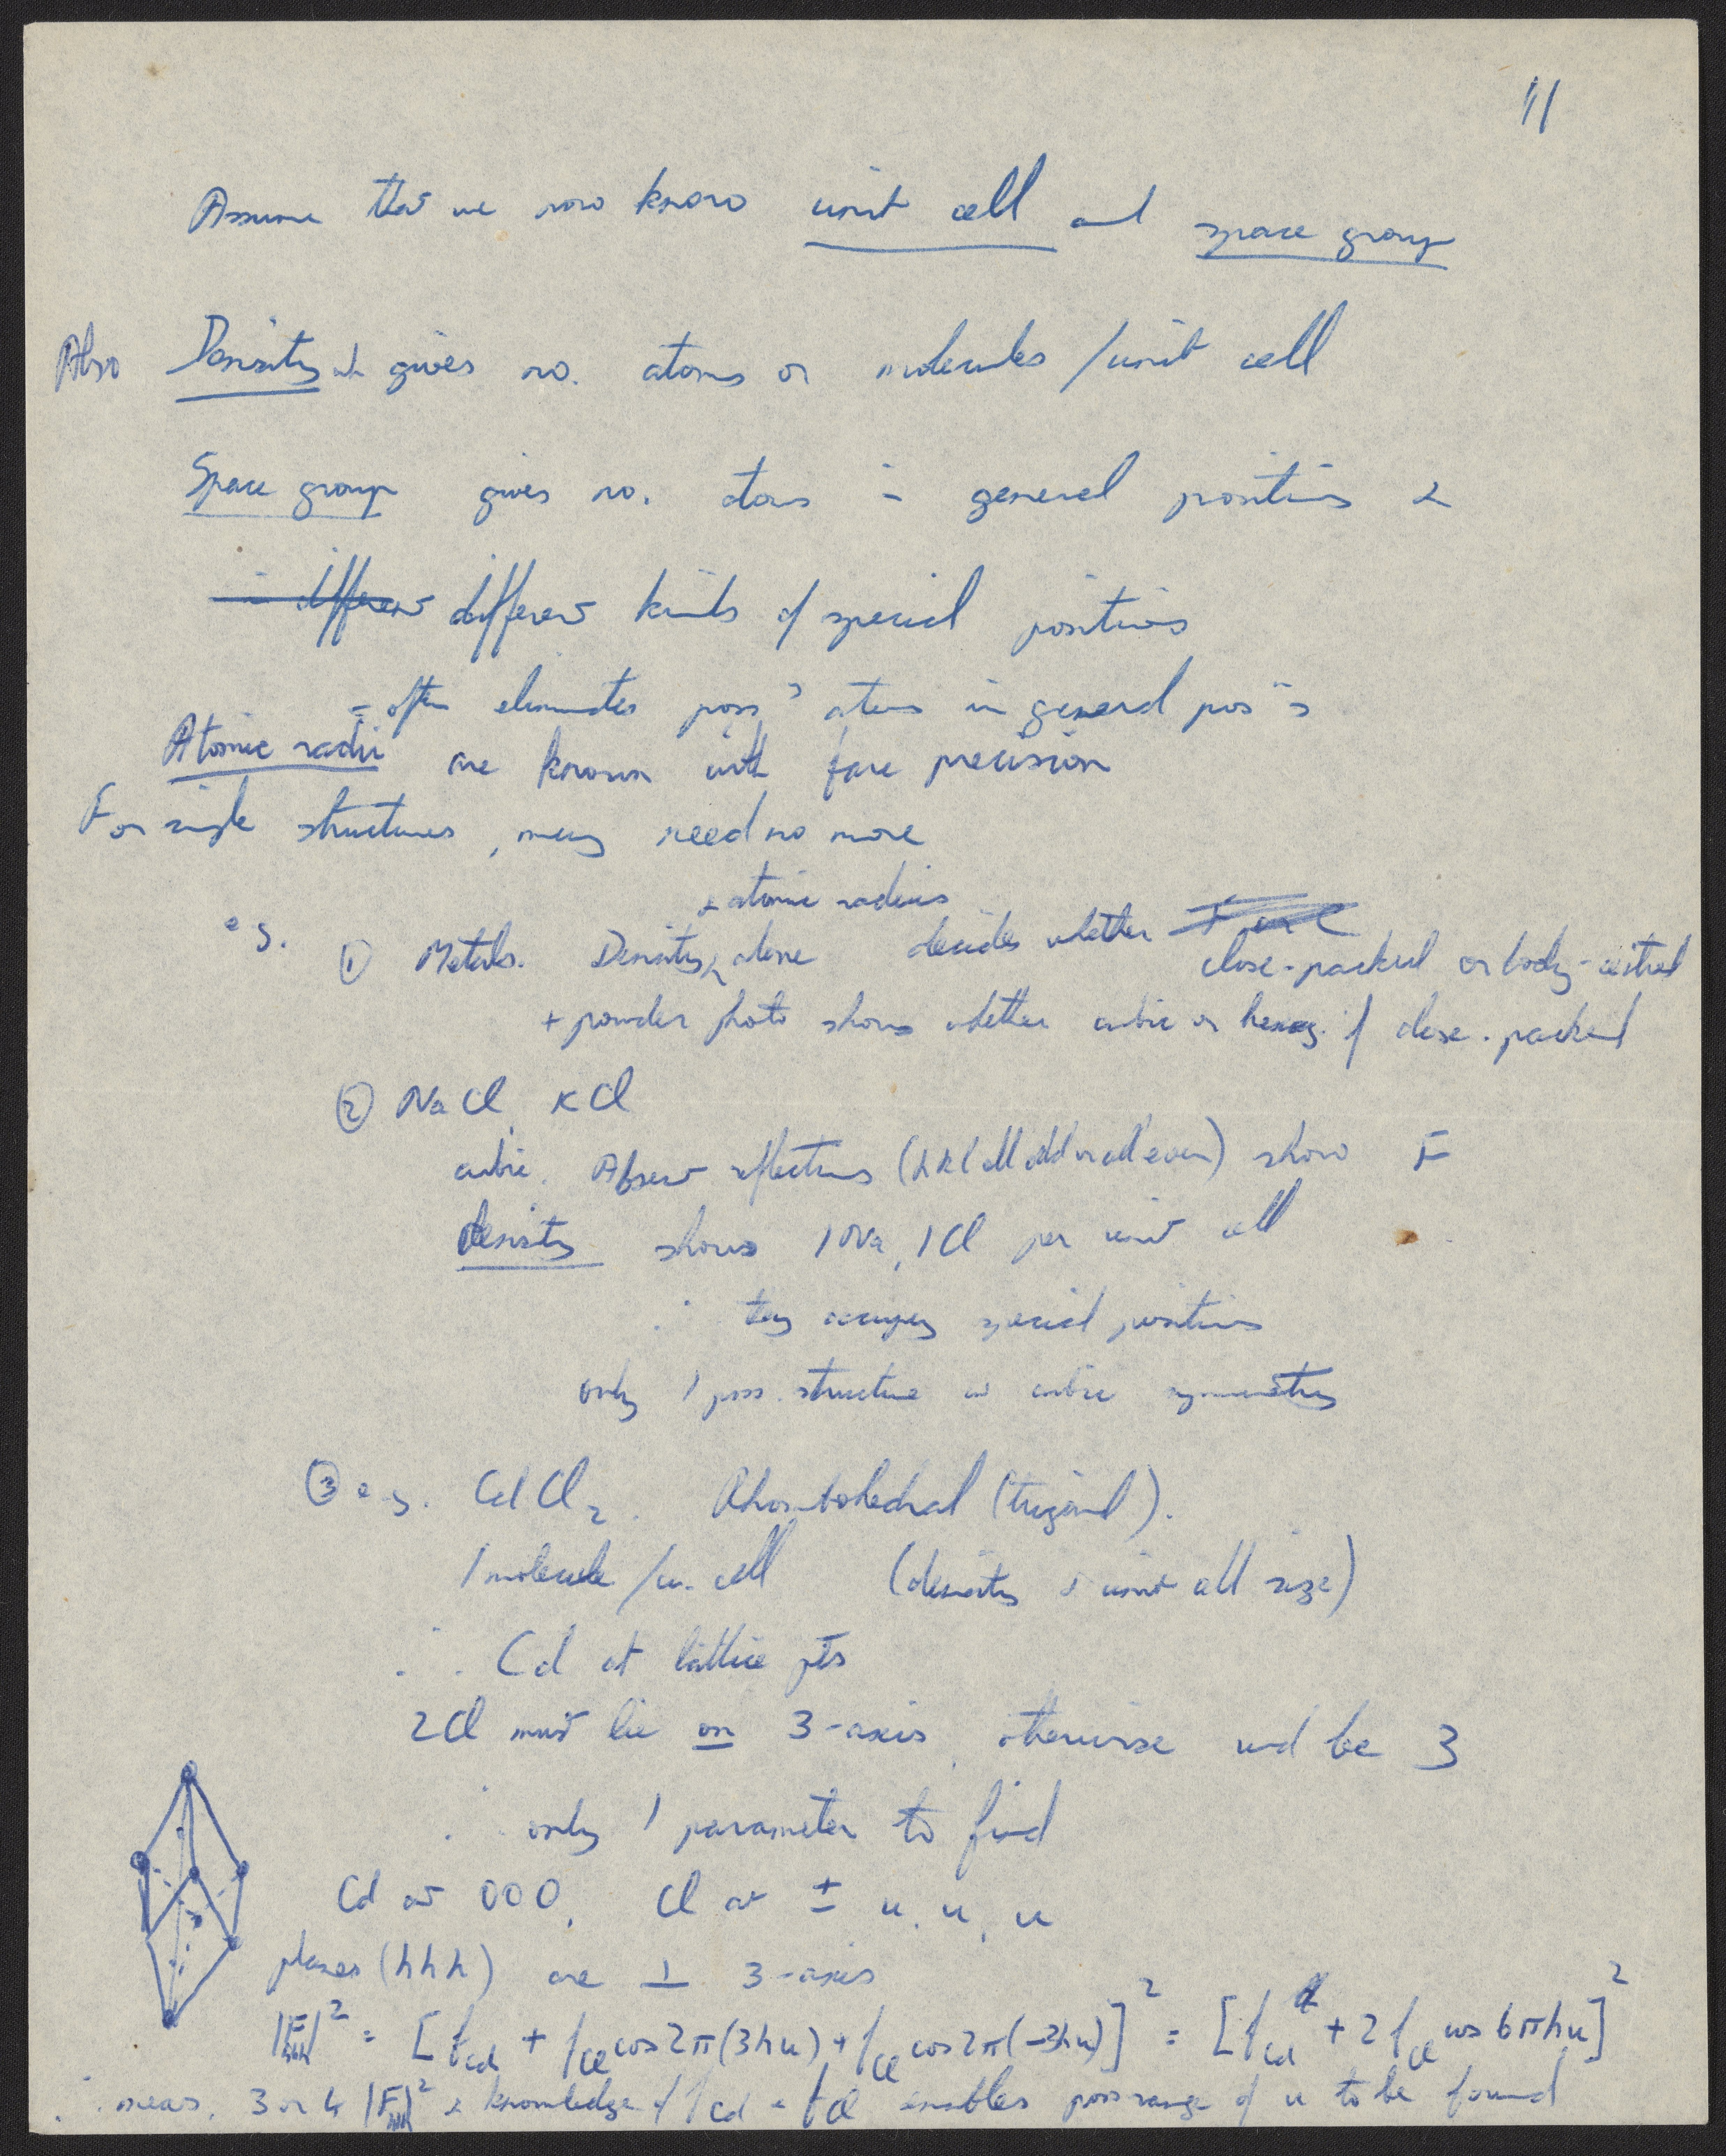 11
Assume that we now know unit cell and space group
Also Density wh gives no. atoms or molecules /unit cell
Space group gives no. atoms in general positions &
in different different kinds of special positions
= often eliminates poss^y atoms in general pos^ns
Atomic radii are known with fare precision
For simple structures, may need no more
+ atomic radius
e.g. ① Metals. Density alone decides whether close-packed or body-centred
+ powder photo shows whether cubic or hexag. if close-packed
② NaCl, KCl
cubic. Absent reflections (hkl all odd or all even) show F
density shows 1 Na, 1 Cl per unit cell
∴ they occupy special positions
only 1 poss. structure w cubic symmetry
③ e.g. CdCl2. Rhombohedral (trigonal).
1 molecule /u. cell (density & unit cell size)
∴ Cd at lattice pts
2Cl must lie on 3-axis, otherwise wd be 3
∴ only 1 parameter to find
Cd at 000, Cl at ± u, u, u
planes (hhh) are ⊥ 3-axis
|F_hhh|² = [f_Cd + f_Cl cos 2π(3hu) + f_Cl cos 2π(-3hu)]² = [f_Cd + 2f_Cl cos 6πhu]²
∴ meas. 3 or 4 |F_hhh|² & knowledge of f_Cd & f_Cl enables poss range of u to be found